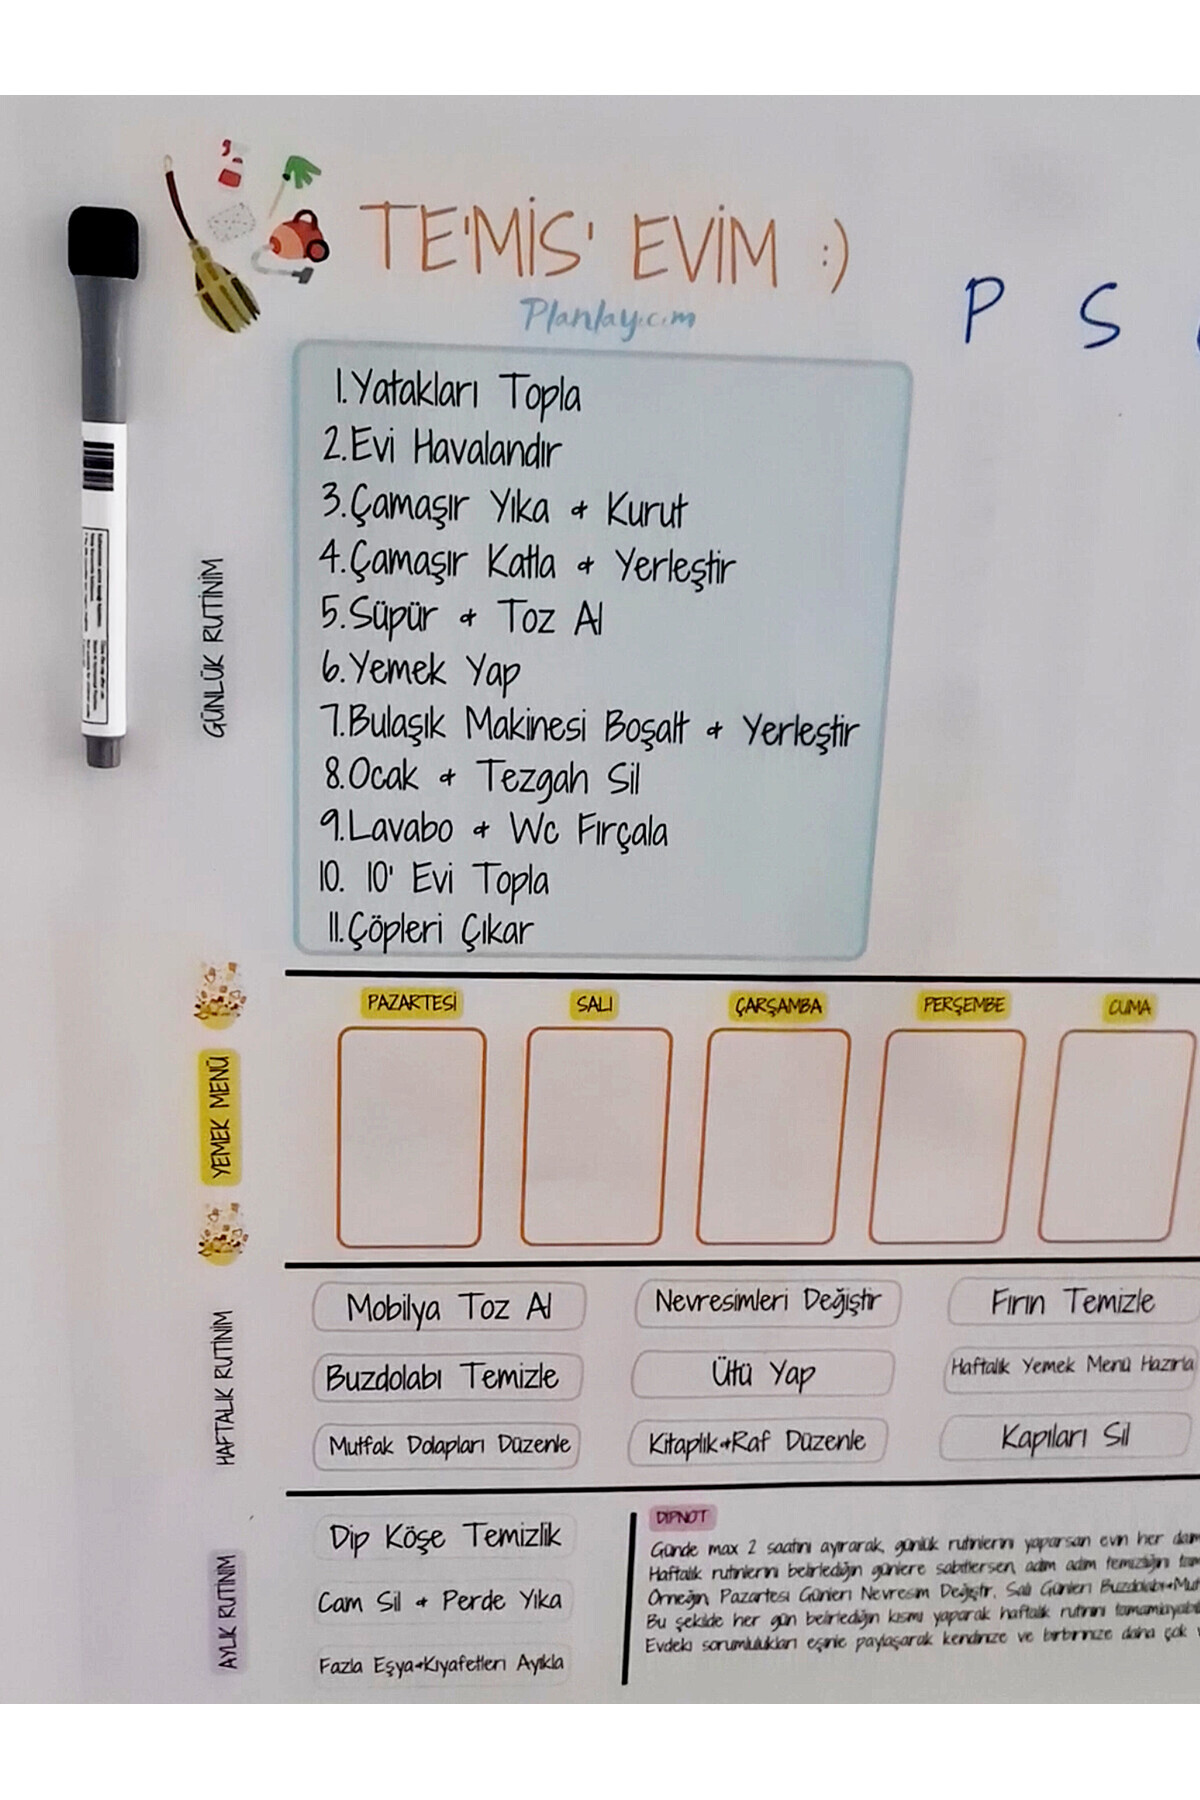 TE'MİS' EVİM :)
Planlay.com
P S
GÜNLÜK RUTİNİM
1.Yatakları Topla
2.Evi Havalandır
3.Çamaşır Yıka & Kurut
4.Çamaşır Katla & Yerleştir
5.Süpür & Toz Al
6.Yemek Yap
7.Bulaşık Makinesi Boşalt & Yerleştir
8.Ocak & Tezgah Sil
9.Lavabo & Wc Fırçala
10. 10' Evi Topla
11.Çöpleri Çıkar
YEMEK MENÜ
PAZARTESİ SALI ÇARŞAMBA PERŞEMBE CUMA
HAFTALIK RUTİNİM
Mobilya Toz Al Nevresimleri Değiştir Fırın Temizle
Buzdolabı Temizle Ütü Yap Haftalık Yemek Menü Hazırla
Mutfak Dolapları Düzenle Kitaplık&Raf Düzenle Kapıları Sil
AYLIK RUTİNİM
Dip Köşe Temizlik
Cam Sil & Perde Yıka
Fazla Eşya&Kıyafetleri Ayıkla
DİPNOT
Günde max 2 saatini ayırarak, günlük rutinlerini yaparsan evin her
Haftalık rutinlerini belirlediğin günlere sabitlersen, adım adım temizliğini
Örneğin, Pazartesi Günleri Nevresim Değiştir, Salı Günleri Buzdolabı&
Bu şekilde her gün belirlediğin kısmı yaparak haftalık rutinini
Evdeki sorumlulukları eşinle paylaşarak kendinize ve birbirinize daha çok